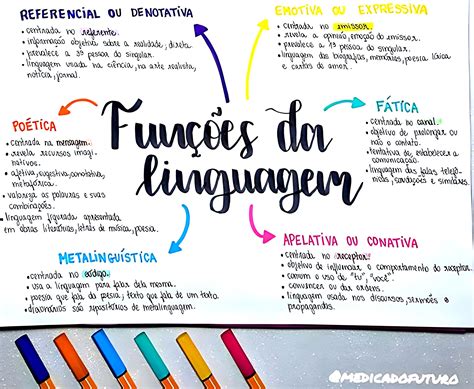 REFERENCIAL OU DENOTATIVA
• centrada no referente.
• informação objetiva sobre a realidade, direta.
• prevalece a 3ª pessoa do singular.
• linguagem usada na ciência, na arte realista,
notícia, jornal.
EMOTIVA OU EXPRESSIVA
• centrada no emissor.
• revela a opinião, emoção do emissor.
• prevalece a 1ª pessoa do singular.
• linguagem das biografias, memórias, poesia lírica
e cartas de amor.
POÉTICA
• centrada na mensagem.
• revela recursos imagi-
nativos.
• afetiva, sugestiva, conotativa,
metafórica.
• valoriza as palavras e suas
combinações.
• linguagem figurada apresentada
em obras literárias, letras de música, poesia.
Funções da
linguagem
FÁTICA
• centrada no canal.
• objetivo de prolongar ou
não o contato.
• tentativa de estabelecer a
comunicação.
• linguagem das falas telefô-
nicas, saudações e similares.
METALINGUÍSTICA
• centrada no código.
• usa a linguagem para falar dela mesma.
• poesia que fala da poesia, texto que fala de um texto.
• dicionários são repositórios de metalinguagem.
APELATIVA OU CONATIVA
• centrada no receptor.
• objetivo de influenciar o comportamento do receptor.
• comum o uso de "tu", "você".
• convencer ou dar ordens.
• linguagem usada nos discursos, sermões e
propagandas.
@MEDICADOFUTURO